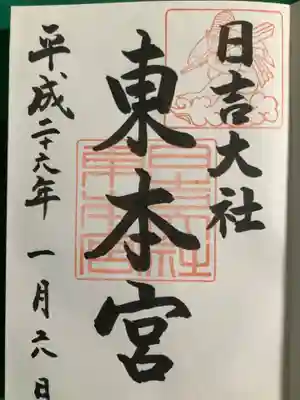 日吉大社
東本宮
平成二十六年 一月六日